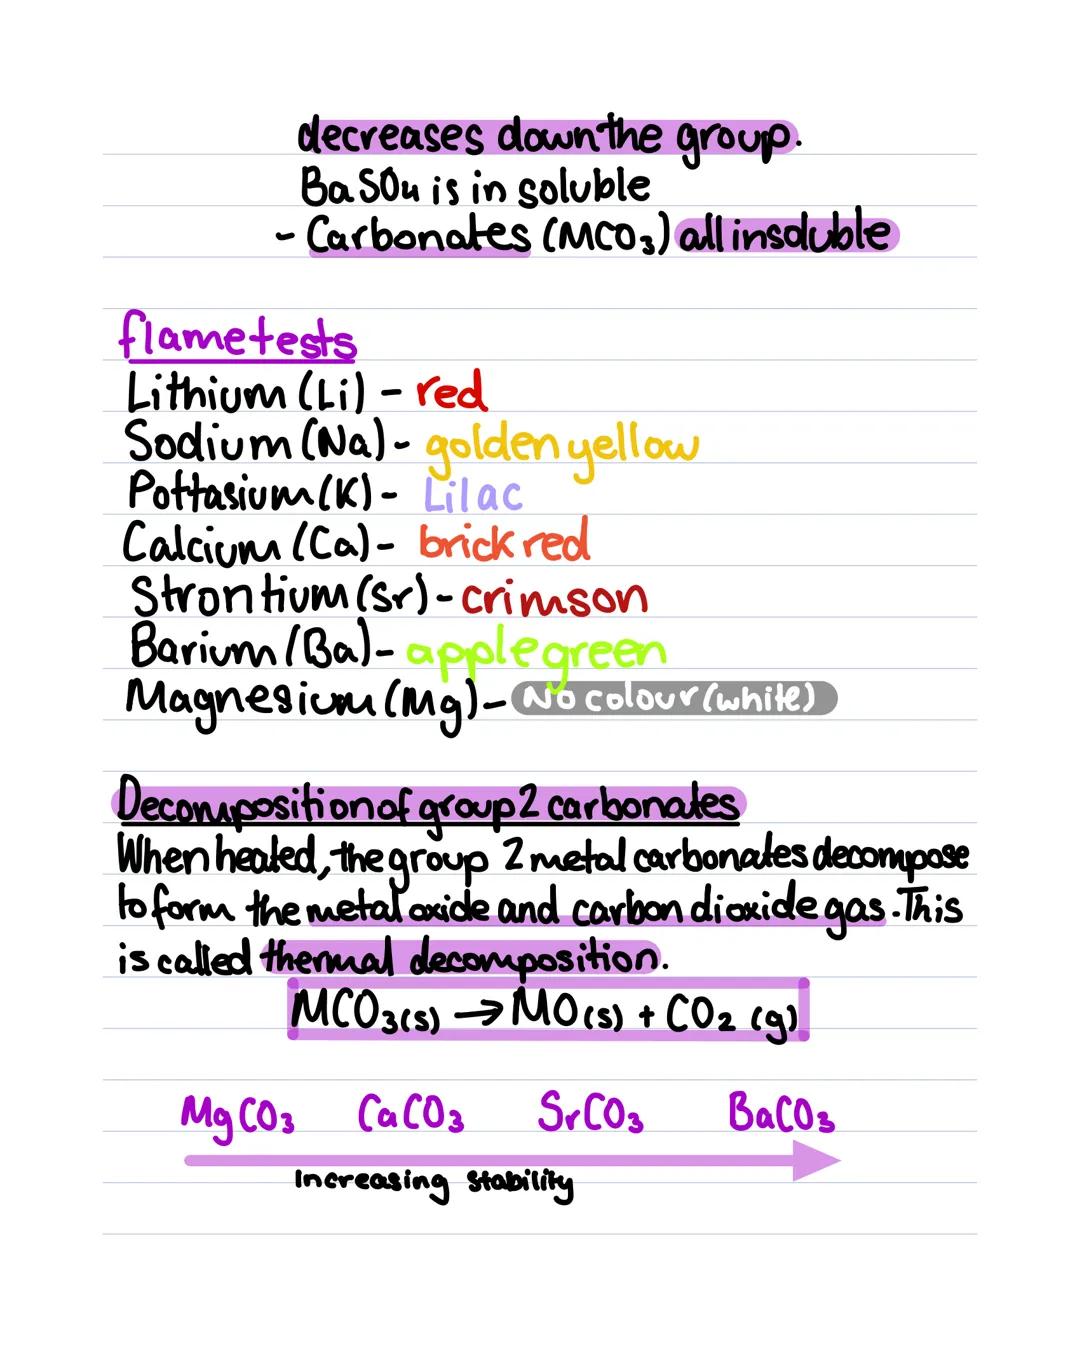 decreases down the group.
BaSO₄ is in soluble
- Carbonates (MCO₃) all insoluble
flame tests
Lithium (Li) - red
Sodium (Na) - golden yellow
Pottasium (K) - Lilac
Calcium (Ca) - brick red
Strontium (Sr) - crimson
Barium (Ba) - apple green
Magnesium (Mg) - No colour (white)
Decomposition of group 2 carbonates
When heated, the group 2 metal carbonates decompose
to form the metal oxide and carbon dioxide gas. This
is called thermal decomposition.
MCO₃(s) → MO(s) + CO₂ (g)
MgCO₃ CaCO₃ SrCO₃ BaCO₃
Increasing stability